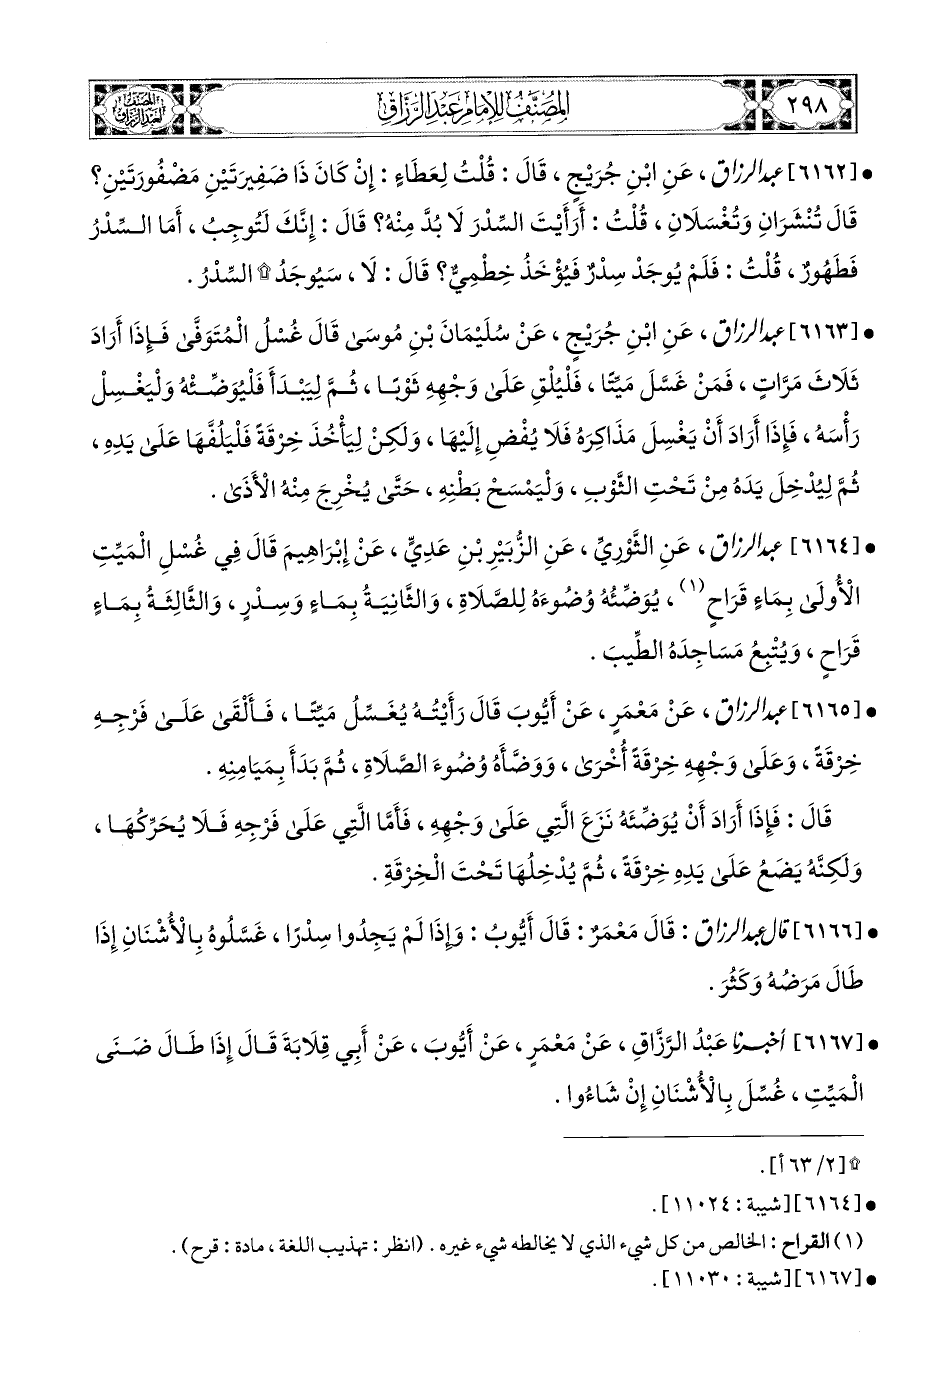 ٢٩٨
المصنف للإمام عبد الرزاق
المصنف لعبد الرزاق
• [٦١٦٢] عبد الرزاق ، عَنِ ابْنِ جُرَيْجٍ ، قَالَ : قُلْتُ لِعَطَاءٍ : إِنْ كَانَ ذَا ضَفِيرَتَيْنِ مَضْفُورَتَيْنِ؟
قَالَ تُنْشَرَانِ وَتُغْسَلَانِ ، قُلْتُ : أَرَأَيْتَ السِّدْرَ لَا بُدَّ مِنْهُ؟ قَالَ : إِنَّكَ لَتُوجِبُ ، أَمَا السِّدْرُ
فَطَهُورٌ ، قُلْتُ : فَلَمْ يُوجَدْ سِدْرٌ فَيُؤْخَذُ خِطْمِيٌّ؟ قَالَ : لَا ، سَيُوجَدُ ۩ السِّدْرُ .
• [٦١٦٣] عبد الرزاق ، عَنِ ابْنِ جُرَيْجٍ ، عَنْ سُلَيْمَانَ بْنِ مُوسَىٰ قَالَ غُسْلُ الْمُتَوَفَّىٰ فَإِذَا أَرَادَ
ثَلَاثَ مَرَّاتٍ ، فَمَنْ غَسَّلَ مَيِّتًا ، فَلْيُلْقِ عَلَىٰ وَجْهِهِ ثَوْبًا ، ثُمَّ لِيَبْدَأْ فَلْيُوَضِّئْهُ وَلْيَغْسِلْ
رَأْسَهُ ، فَإِذَا أَرَادَ أَنْ يَغْسِلَ مَذَاكِرَهُ فَلَا يُفْضِ إِلَيْهَا ، وَلَكِنْ لِيَأْخُذَ خِرْقَةً فَلْيَلُفَّهَا عَلَىٰ يَدِهِ ،
ثُمَّ لِيُدْخِلَ يَدَهُ مِنْ تَحْتِ الثَّوْبِ ، وَلْيَمْسَحْ بَطْنِهِ ، حَتَّىٰ يُخْرِجَ مِنْهُ الْأَذَىٰ .
• [٦١٦٤] عبد الرزاق ، عَنِ الثَّوْرِيِّ ، عَنِ الزُّبَيْرِ بْنِ عَدِيٍّ ، عَنْ إِبْرَاهِيمَ قَالَ فِي غُسْلِ الْمَيِّتِ
الْأُولَىٰ بِمَاءٍ قَرَاحٍ (١) ، يُوَضِّئُهُ وُضُوءَهُ لِلصَّلَاةِ ، وَالثَّانِيَةُ بِمَاءٍ وَسِدْرٍ ، وَالثَّالِثَةُ بِمَاءٍ
قَرَاحٍ ، وَيُتْبِعُ مَسَاجِدَهُ الطِّيبَ .
• [٦١٦٥] عبد الرزاق ، عَنْ مَعْمَرٍ ، عَنْ أَيُّوبَ قَالَ رَأَيْتُهُ يُغَسِّلُ مَيِّتًا ، فَأَلْقَىٰ عَلَىٰ فَرْجِهِ
خِرْقَةً ، وَعَلَىٰ وَجْهِهِ خِرْقَةً أُخْرَىٰ ، وَوَضَّأَهُ وُضُوءَ الصَّلَاةِ ، ثُمَّ بَدَأَ بِمَيَامِنِهِ .
قَالَ : فَإِذَا أَرَادَ أَنْ يُوَضِّئَهُ نَزَعَ الَّتِي عَلَىٰ وَجْهِهِ ، فَأَمَّا الَّتِي عَلَىٰ فَرْجِهِ فَلَا يُحَرِّكُهَا ،
وَلَكِنَّهُ يَضَعُ عَلَىٰ يَدِهِ خِرْقَةً ، ثُمَّ يُدْخِلُهَا تَحْتَ الْخِرْقَةِ .
• [٦١٦٦] قال عبد الرزاق : قَالَ مَعْمَرٌ : قَالَ أَيُّوبُ : وَإِذَا لَمْ يَجِدُوا سِدْرًا ، غَسَّلُوهُ بِالْأُشْنَانِ إِذَا
طَالَ مَرَضُهُ وَكَثُرَ .
• [٦١٦٧] أخبرنا عَبْدُ الرَّزَّاقِ ، عَنْ مَعْمَرٍ ، عَنْ أَيُّوبَ ، عَنْ أَبِي قِلَابَةَ قَالَ إِذَا طَالَ ضَنَىٰ
الْمَيِّتِ ، غُسِّلَ بِالْأُشْنَانِ إِنْ شَاءُوا .
۩ [٢/ ٦٣ أ].
• [٦١٦٤] [شيبة : ١١٠٢٤].
(١) القراح : الخالص من كل شيء الذي لا يخالطه شيء غيره . (انظر : تهذيب اللغة ، مادة : قرح) .
• [٦١٦٧] [شيبة : ١١٠٣٠].